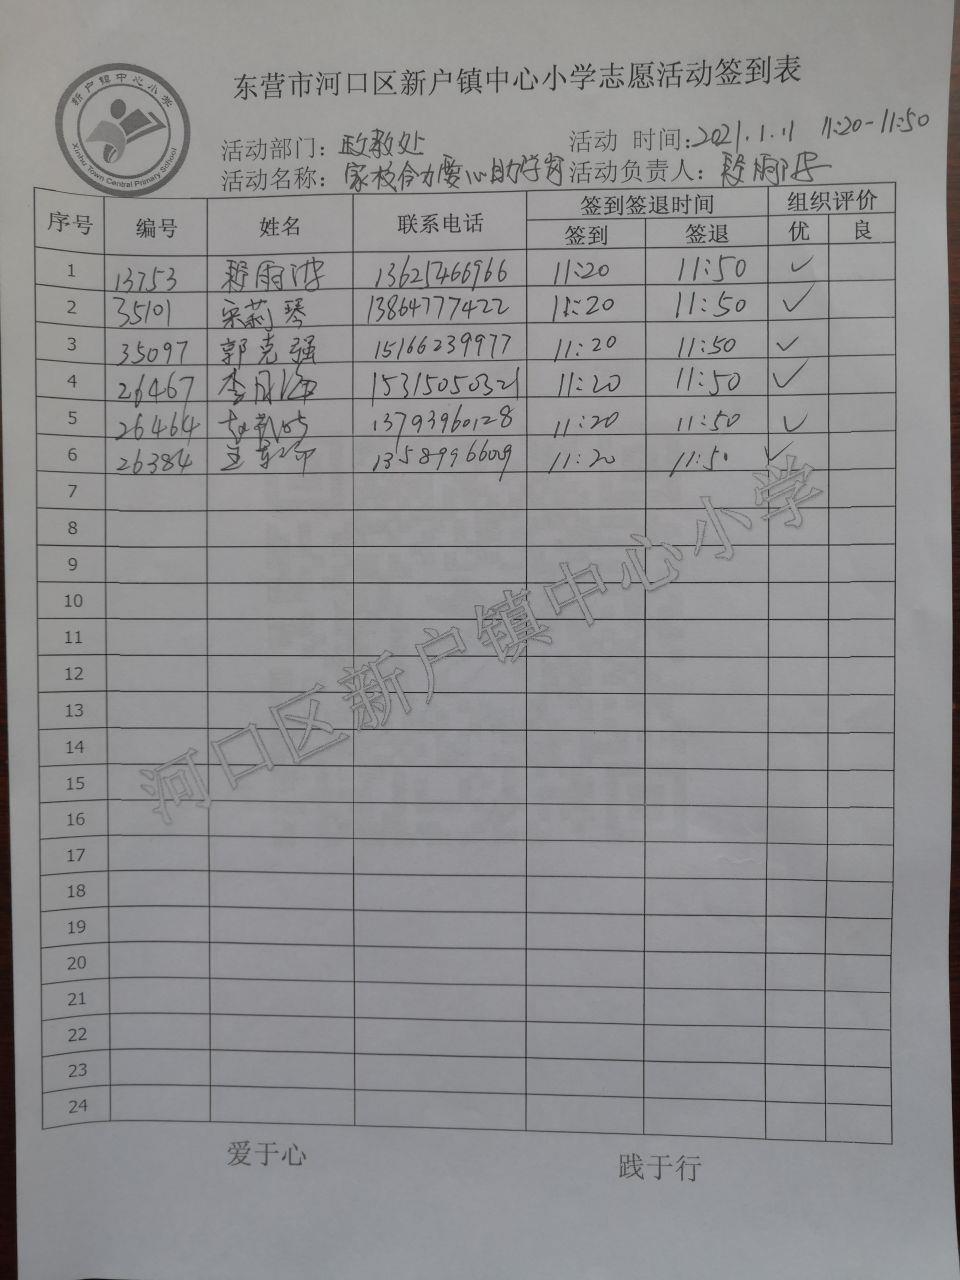 新户镇中心小学
Xinhu Town Central Primary School
东营市河口区新户镇中心小学志愿活动签到表
活动部门：政教处 活动 时间：2021.1.11 11:20-11:50
活动名称：家校合力爱心助学岗 活动负责人：
序号 编号 姓名 联系电话 签到签退时间 组织评价
签到 签退 优 良
1 13753 13625466966 11:20 11:50 ✓
2 35101 宋莉琴 13864777422 11:20 11:50 ✓
3 35097 郭克强 15166239977 11:20 11:50 ✓
4 26467 15315050321 11:20 11:50 ✓
5 26464 13793960128 11:20 11:50 ✓
6 26384 13589966009 11:20 11:50 ✓
7
8
9
10
11
12
13
14
15
16
17
18
19
20
21
22
23
24
河口区新户镇中心小学
爱于心 践于行